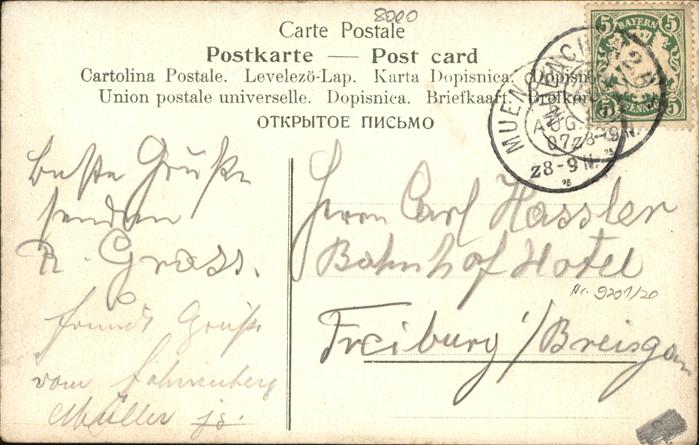 8000
Carte Postale
Postkarte — Post card
Cartolina Postale. Levelezö-Lap. Karta Dopisnica.
Union postale universelle. Dopisnica. Briefkaart. Brefkort
ОТКРЫТОЕ ПИСЬМО
5 BAYERN 5
5 PFENNIG 5
MUENCHEN
AUG.
07 Z 8-9 N.
Z 8-9 N.
beste Grüße
senden
R. Grass.
Freundl Grüße
vom
Müller jr.
Herrn Carl Hassler
Bahnhof Hotel
No. 9201/20
Freiburg i/Breisgau